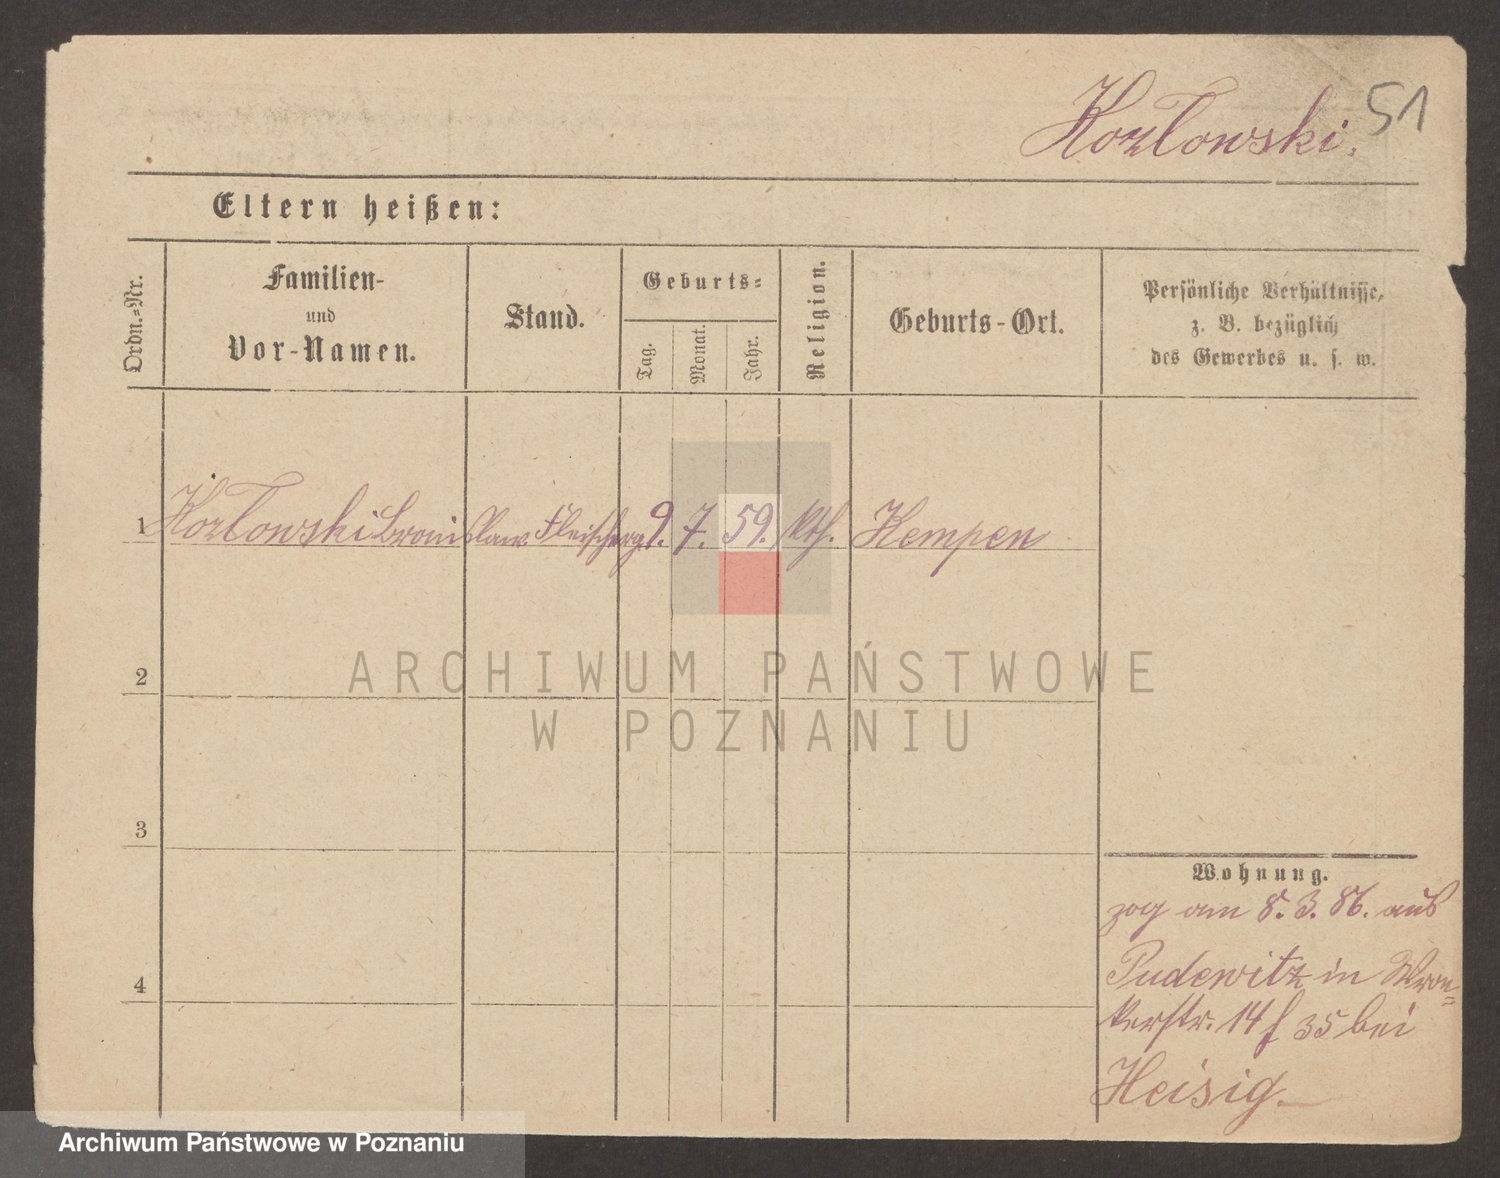 Kozłowski. 51
Eltern heißen:
Ordn.-Nr.
Familien-
und
Vor-Namen.
Stand.
Geburts-
Tag.
Monat.
Jahr.
Religion.
Geburts-Ort.
Persönliche Verhältnisse,
z. B. bezüglich
des Gewerbes u. s. w.
1 Kozłowski Bronislaw Fleischerg. 9. 7. 59. kth. Kempen
2
3
4
Wohnung.
zog am 8. 3. 86. aus
Pudewitz in Wron=
kerstr. 14 f 35 bei
Heisig.
ARCHIWUM PAŃSTWOWE
W POZNANIU
Archiwum Państwowe w Poznaniu